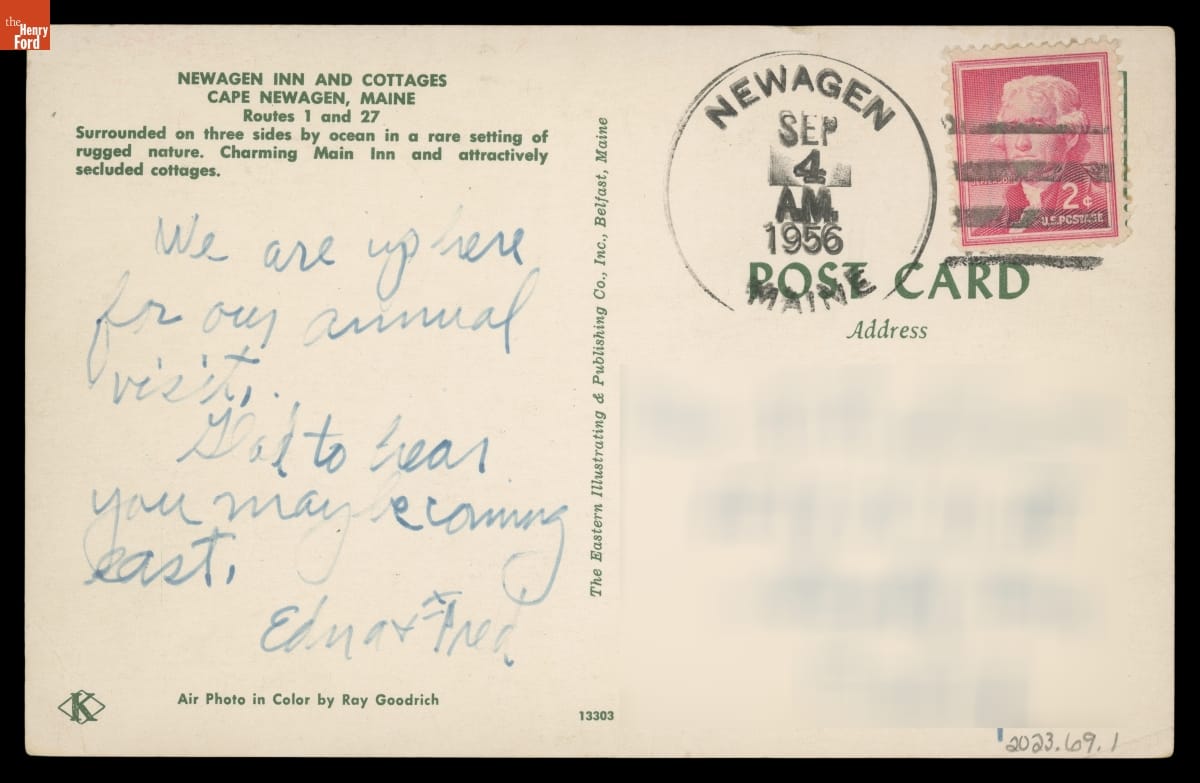 the
Henry
Ford
NEWAGEN INN AND COTTAGES
CAPE NEWAGEN, MAINE
Routes 1 and 27
Surrounded on three sides by ocean in a rare setting of
rugged nature. Charming Main Inn and attractively
secluded cottages.
We are up here
for our annual
visit.
Glad to hear
you may be coming
east.
Edna + Fred
Air Photo in Color by Ray Goodrich
K
13303
The Eastern Illustrating & Publishing Co., Inc., Belfast, Maine
NEWAGEN
SEP
4
A.M.
1956
MAINE
2¢
U.S. POSTAGE
POST CARD
Address
2023.69.1